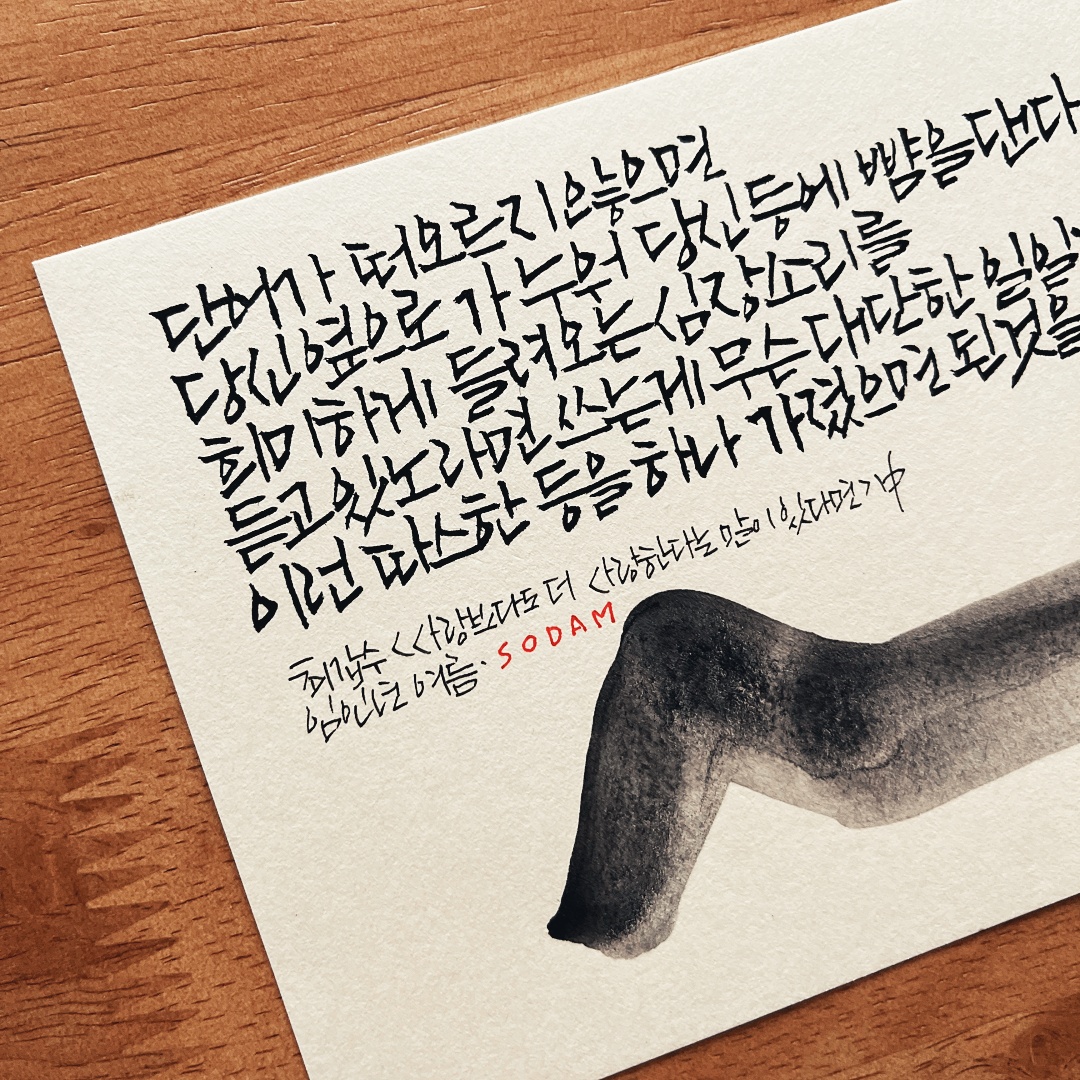 단어가 떠오르지 않으면
당신 옆으로 가 누워 당신 등에 뺨을 댄다
희미하게 들려오는 심장소리를
듣고 있노라면 쓰는게 무슨 대단한 일일
이런 따스한 등을 하나 가졌으면 된것을
최갑수 <사랑보다도 더 사랑한다는 말이 있다면> 中
임인년 여름. SODAM